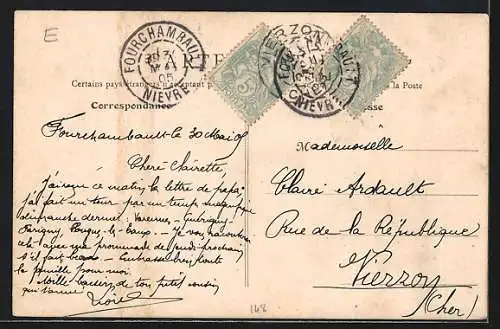 E
FOURCHAMBAULT
MAI
05
NIEVRE
VIERZON
FOURCHAMBAULT
NIEVRE
CARTE
Certains pays étrangers
la Poste
Correspondance
Fourchambault le 30 Mai 05
Chère Clairette,
J'ai reçu ce matin la lettre de papa,
j'ai fait un tour par un temps magnifique
dimanche dernier: Varennes -
Parigny, Pougues-les-Eaux. - Je vous raconterai
cela avec ma promenade de jeudi prochain
s'il fait beau - Embrasse bien toute
la famille pour moi.
Mille baisers de ton petit cousin
qui t'aime
Mademoiselle
Claire Ardault
Rue de la République
Vierzon
(Cher)
148